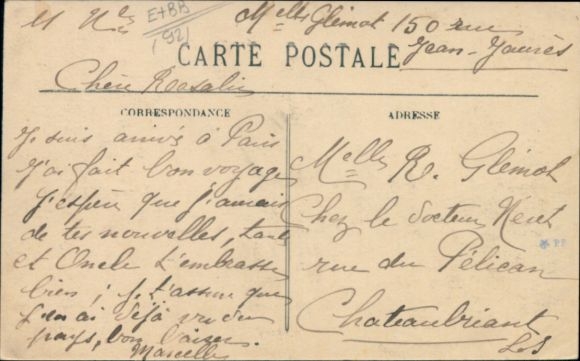 E+BB
(92)
Melle Glémot 150 rue
Jean-Jaurès
CARTE POSTALE
Chère Rosalie
CORRESPONDANCE
Je suis arrivé à Paris
J'ai fait bon voyage
j'espère que j'aurais
de tes nouvelles, tante
et Oncle t'embrasse
bien ; je t'assure que
j'en ai déjà vu du
pays, bon baiser.
Marcelle
ADRESSE
Melle R. Glémot
Chez le docteur
rue du Pélican
Chateaubriant